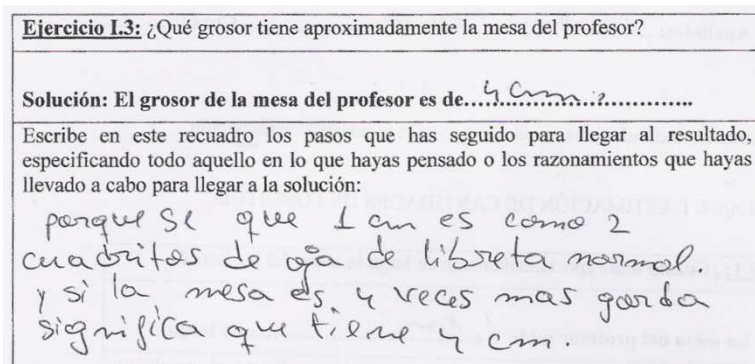 Ejercicio I.3: ¿Qué grosor tiene aproximadamente la mesa del profesor?
Solución: El grosor de la mesa del profesor es de....4 cm..............
Escribe en este recuadro los pasos que has seguido para llegar al resultado,
especificando todo aquello en lo que hayas pensado o los razonamientos que hayas
llevado a cabo para llegar a la solución:
porque se que 1 cm es como 2
cuadritos de oja de libreta normal.
y si la mesa es 4 veces mas gorda
significa que tiene 4 cm.